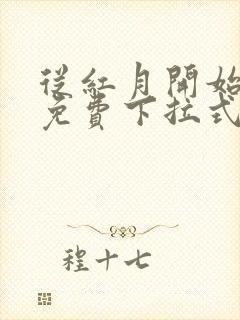 從紅月開始
免費下拉式
程十七